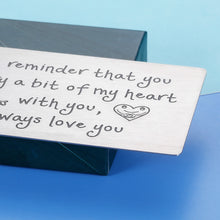 reminder that you
a bit of my heart
with you,
love you